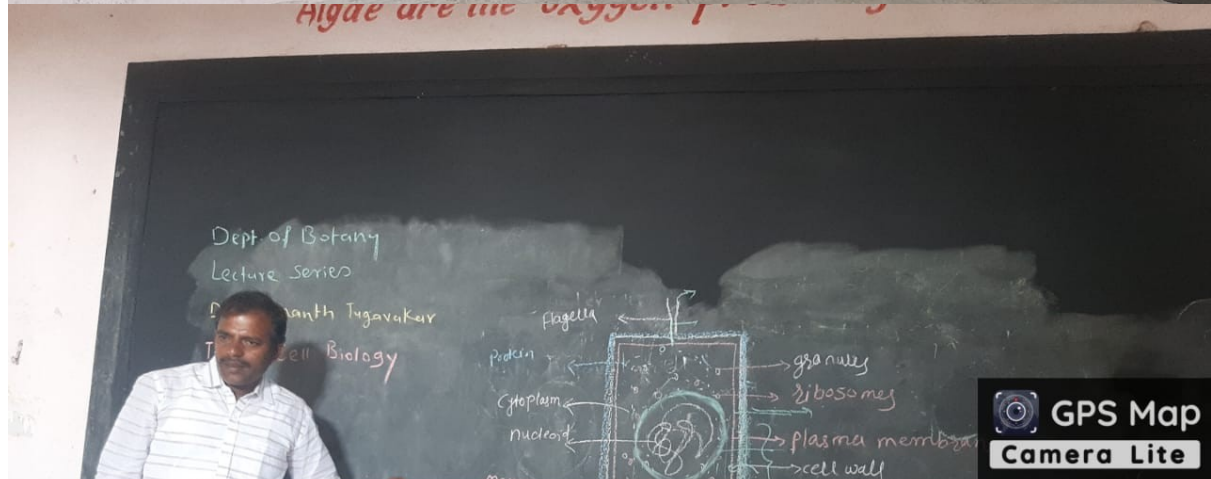 Algae are the oxygen
Dept. of Botany
Lecture Series
anth Tugavakar
Cell Biology
flagella
protein
Cytoplasm
nucleoid
granules
ribosomes
plasma membran
cell wall
GPS Map
Camera Lite